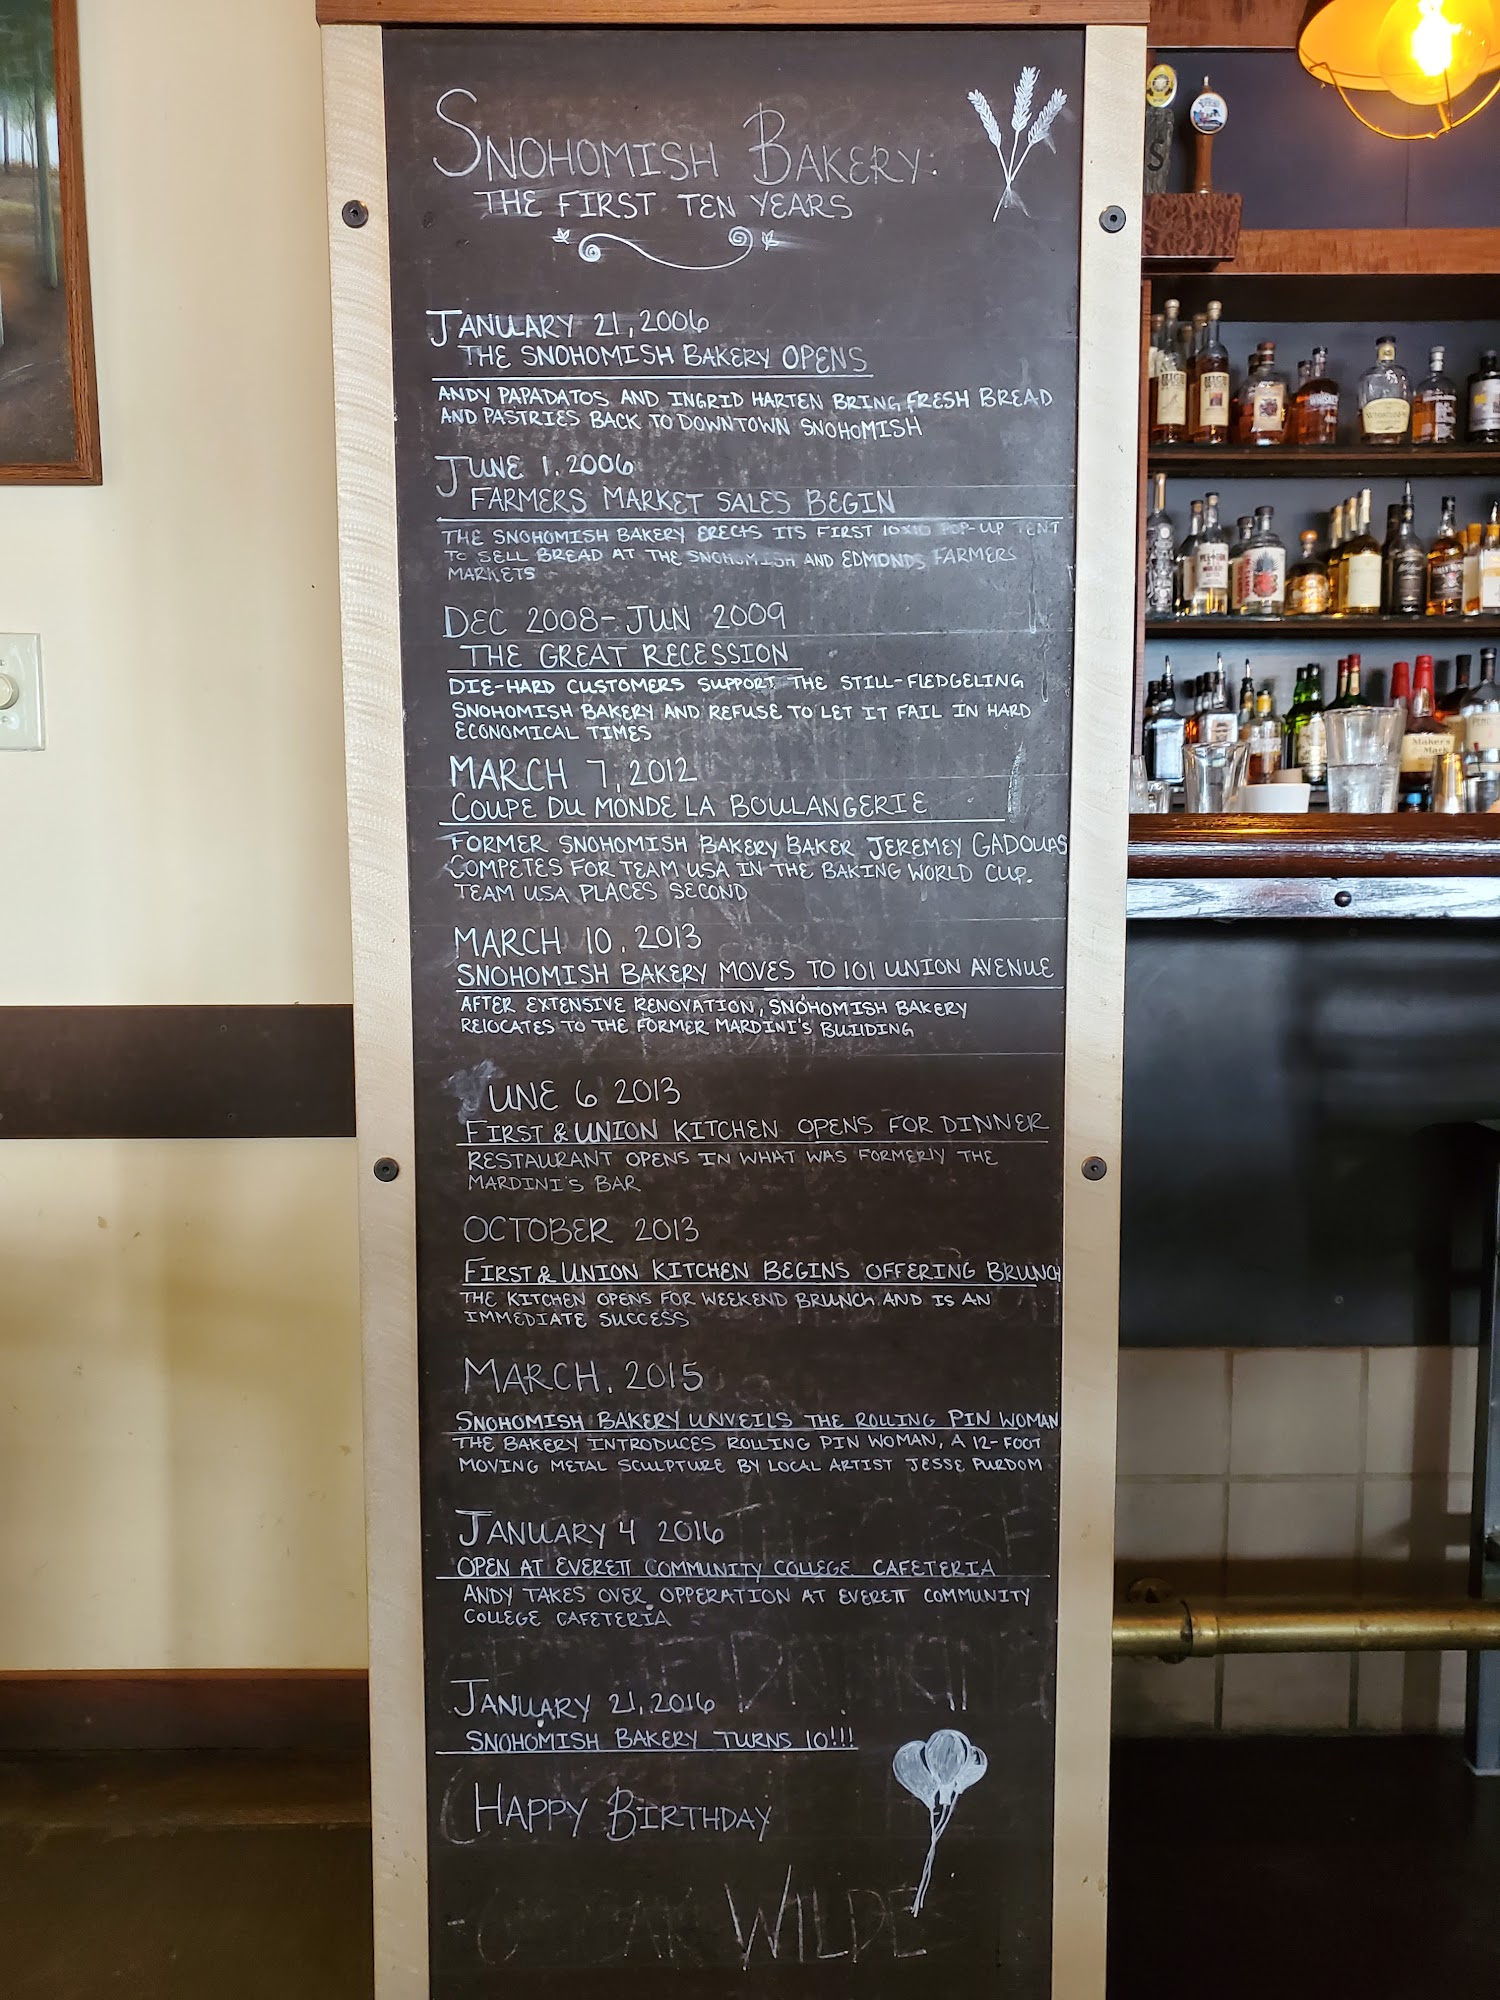 SNOHOMISH BAKERY:
THE FIRST TEN YEARS
JANUARY 21, 2006
THE SNOHOMISH BAKERY OPENS
ANDY PAPADATOS AND INGRID HARTEN BRING FRESH BREAD
AND PASTRIES BACK TO DOWNTOWN SNOHOMISH
JUNE 1, 2006
FARMERS MARKET SALES BEGIN
THE SNOHOMISH BAKERY ERECTS ITS FIRST 10X10 POP-UP TENT
TO SELL BREAD AT THE SNOHOMISH AND EDMONDS FARMERS
MARKETS
DEC 2008-JUN 2009
THE GREAT RECESSION
DIE-HARD CUSTOMERS SUPPORT THE STILL-FLEDGELING
SNOHOMISH BAKERY AND REFUSE TO LET IT FAIL IN HARD
ECONOMICAL TIMES
MARCH 7, 2012
COUPE DU MONDE LA BOULANGERIE
FORMER SNOHOMISH BAKERY BAKER JEREMEY GADOUAS
COMPETES FOR TEAM USA IN THE BAKING WORLD CUP.
TEAM USA PLACES SECOND
MARCH 10, 2013
SNOHOMISH BAKERY MOVES TO 101 UNION AVENUE
AFTER EXTENSIVE RENOVATION, SNOHOMISH BAKERY
RELOCATES TO THE FORMER MARDINI'S BUILDING
JUNE 6 2013
FIRST & UNION KITCHEN OPENS FOR DINNER
RESTAURANT OPENS IN WHAT WAS FORMERLY THE
MARDINI'S BAR
OCTOBER 2013
FIRST & UNION KITCHEN BEGINS OFFERING BRUNCH
THE KITCHEN OPENS FOR WEEKEND BRUNCH AND IS AN
IMMEDIATE SUCCESS
MARCH, 2015
SNOHOMISH BAKERY UNVEILS THE ROLLING PIN WOMAN
THE BAKERY INTRODUCES ROLLING PIN WOMAN, A 12-FOOT
MOVING METAL SCULPTURE BY LOCAL ARTIST JESSE PURDOM
JANUARY 4 2016
OPEN AT EVERETT COMMUNITY COLLEGE CAFETERIA
ANDY TAKES OVER OPPERATION AT EVERETT COMMUNITY
COLLEGE CAFETERIA
JANUARY 21, 2016
SNOHOMISH BAKERY TURNS 10!!!
HAPPY BIRTHDAY
WILDE
Maker's
Mark